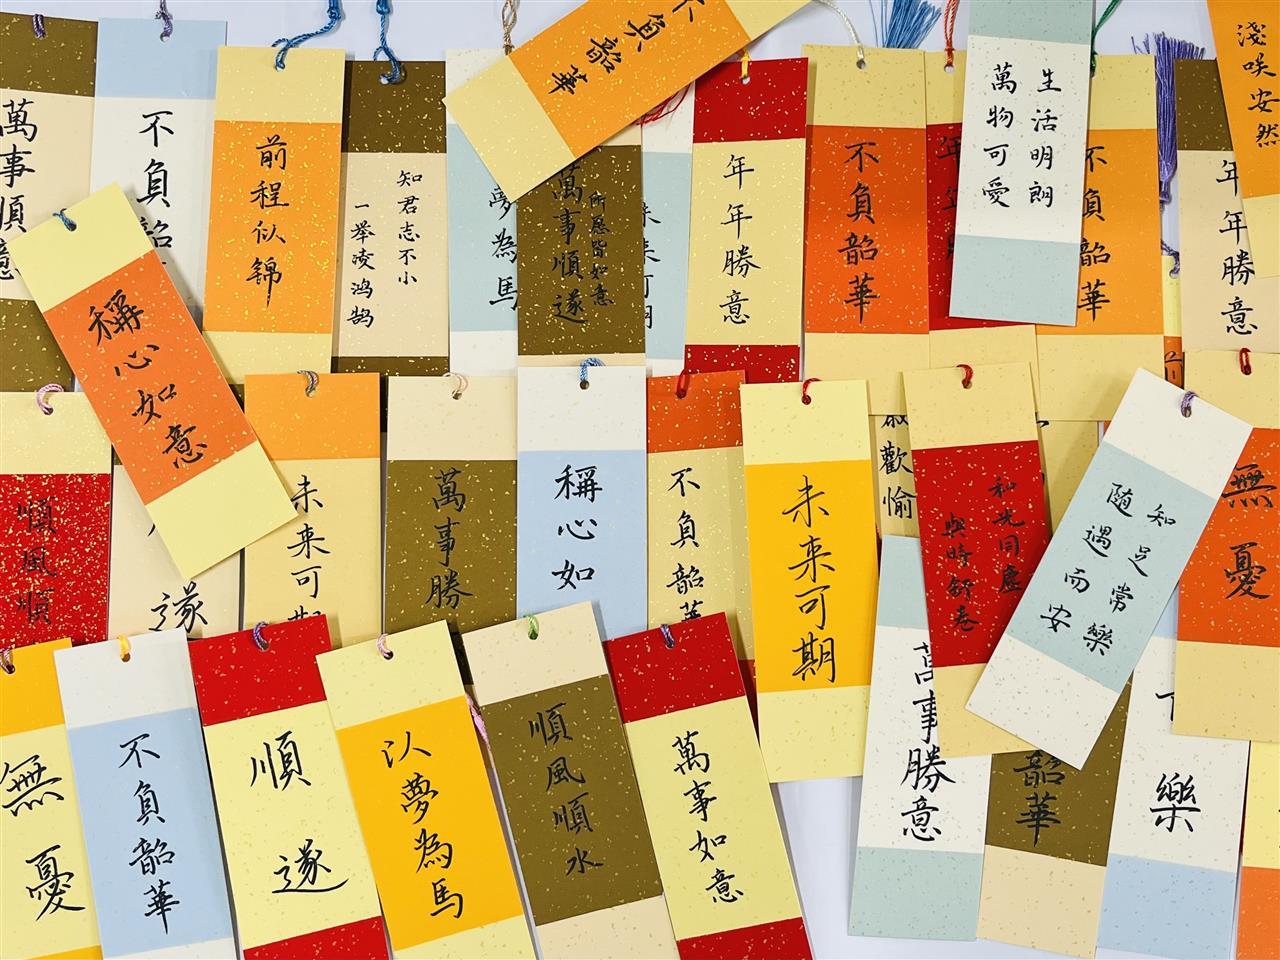 萬事順意
不負韶
前程似錦
知君志不小
一舉凌鸿鹄
夢為馬
不負韶華
萬事順遂
所愿皆如意
未来可期
年年勝意
不負韶華
年年
生活明朗
萬物可愛
不負韶華
年年勝意
淺咲安然
稱心如意
順風順
遂
未来可期
萬事勝
稱心如
不負韶華
未来可期
歡愉
和光同塵
與時舒卷
知足常樂
随遇而安
無憂
無憂
不負韶華
順遂
以夢為馬
順風順水
萬事如意
萬事勝意
韶華
樂